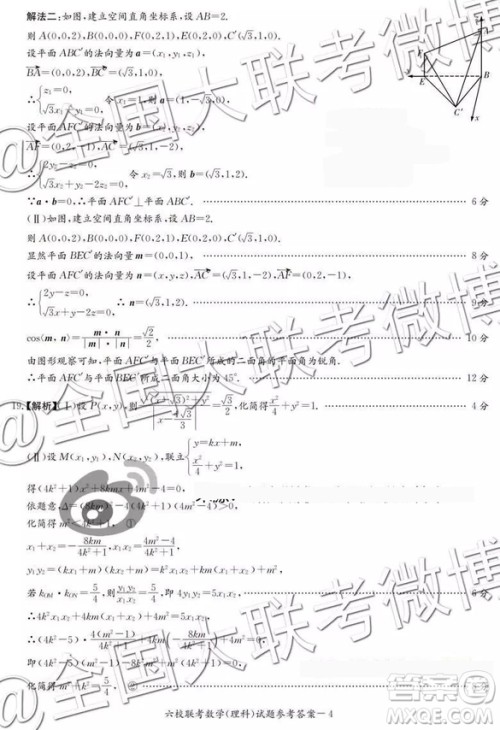 解法二:如图,建立空间直角坐标系,设AB=2.
则A(0,0,2),B(0,0,0),F(0,2,1),E(0,2,0),C′(√3,1,0).
设平面ABC′的法向量为a=(x₁,y₁,z₁),
BA=(0,0,2),BC′=(√3,1,0),
∴{z₁=0, √3x₁+y₁=0 令x₁=1,则a=(1,-√3,0),
设平面AFC′的法向量为b=(x₂,y₂,z₂),
AF=(0,2,-1),AC′=(√3,1,-2),
∴{2y₂-z₂=0, √3x₂+y₂-2z₂=0, 令x₂=√3,则b=(√3,1,2).
∵a·b=0,∴平面AFC′⊥平面ABC′. 6分
(Ⅱ)如图,建立空间直角坐标系,设AB=2.
则A(0,0,2),B(0,0,0),F(0,2,1),E(0,2,0),C′(√3,1,0).
显然平面BEC′的法向量m=(0,0,1), 8分
设平面AFC′的法向量为n=(x,y,z),AC′=(√3,1,-2),AF=(0,2,-1),
∴{2y-z=0, √3x+y-2z=0, ∴n=(√3,1,2). 9分
cos⟨m,n⟩=m·n/|m|·|n|=√2/2, 10分
由图形观察可知,平面AFC′与平面BEC′所成的二面角的平面角为锐角.
∴平面AFC′与平面BEC′所成二面角大小为45°. 12分
19.【解析】(Ⅰ)设P(x,y),则 =√3/2,化简得x²/4+y²=1. 4分
(Ⅱ)设M(x₁,y₁),N(x₂,y₂),联立{y=kx+m, x²/4+y²=1
得(4k²+1)x²+8kmx+4m²-4=0,
依题意,
化简得m²<4k²+1, ①
x₁+x₂=-8km/4k²+1,x₁x₂=4m²-4/4k²+1, 6分
y₁y₂=(kx₁+m)(kx₂+m)=k²x₁x₂+km(x₁+x₂)+m²,
若k_OM·k_ON=5/4,则y₁y₂/x₁x₂=5/4,即4y₁y₂=5x₁x₂,
∴4k²x₁x₂+4km(x₁+x₂)+4m²=5x₁x₂,
∴(4k²-5)·4(m²-1)/4k²+1+4km·(-8km/4k²+1)+4m²=0,
即(4k²-5)(m²-1)-8k²m²+m²(4k²+1)=0,
六校联考数学(理科)试题参考答案-4
A
F
E
B
C′
x
@全国大联考微博